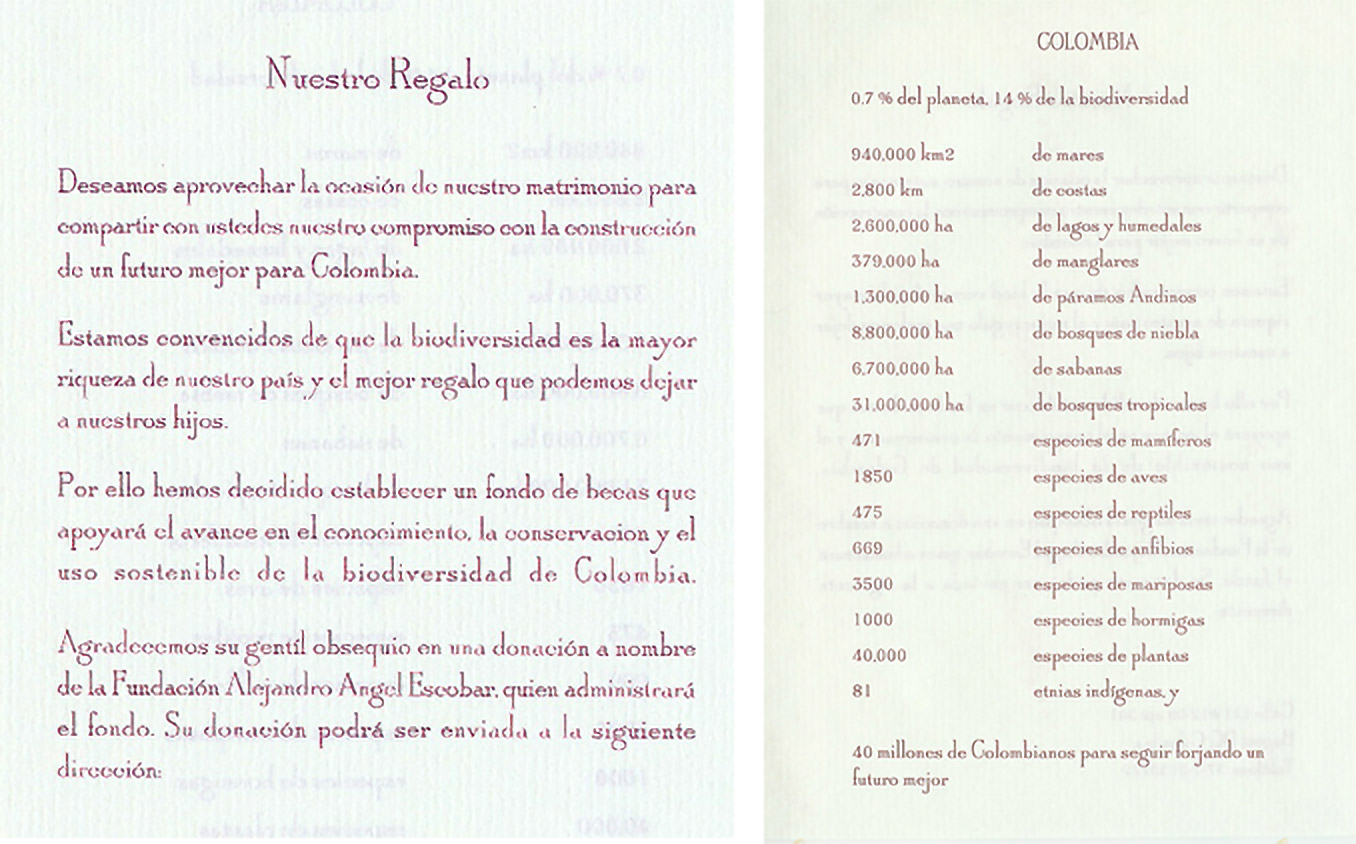 Nuestro Regalo
Deseamos aprovechar la ocasión de nuestro matrimonio para
compartir con ustedes nuestro compromiso con la construcción
de un futuro mejor para Colombia.
Estamos convencidos de que la biodiversidad es la mayor
riqueza de nuestro país y el mejor regalo que podemos dejar
a nuestros hijos.
Por ello hemos decidido establecer un fondo de becas que
apoyará el avance en el conocimiento, la conservacion y el
uso sostenible de la biodiversidad de Colombia.
Agradecemos su gentil obsequio en una donación a nombre
de la Fundación Alejandro Angel Escobar, quien administrará
el fondo. Su donación podrá ser enviada a la siguiente
dirección:
COLOMBIA
0.7 % del planeta, 14 % de la biodiversidad
940,000 km2 de mares
2,800 km de costas
2,600,000 ha de lagos y humedales
379,000 ha de manglares
1,300,000 ha de páramos Andinos
8,800,000 ha de bosques de niebla
6,700,000 ha de sabanas
31,000,000 ha de bosques tropicales
471 especies de mamíferos
1850 especies de aves
475 especies de reptiles
669 especies de anfibios
3500 especies de mariposas
1000 especies de hormigas
40,000 especies de plantas
81 etnias indígenas, y
40 millones de Colombianos para seguir forjando un
futuro mejor